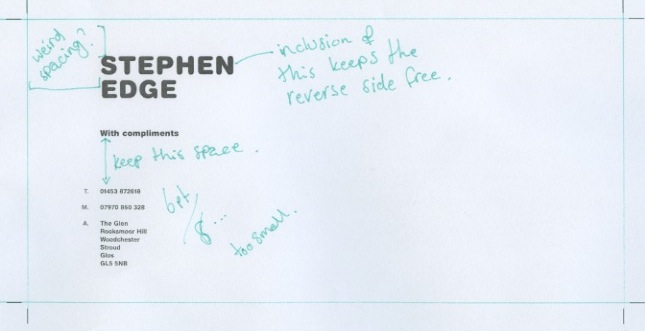 weird
spacing?
STEPHEN
EDGE
inclusion of
this keeps the
reverse side free.
With compliments
keep this space.
T. 01453 872618
M. 07970 850 328
A. The Glen
Rooksmoor Hill
Woodchester
Stroud
Glos
GL5 5NB
6pt/8...
too small.